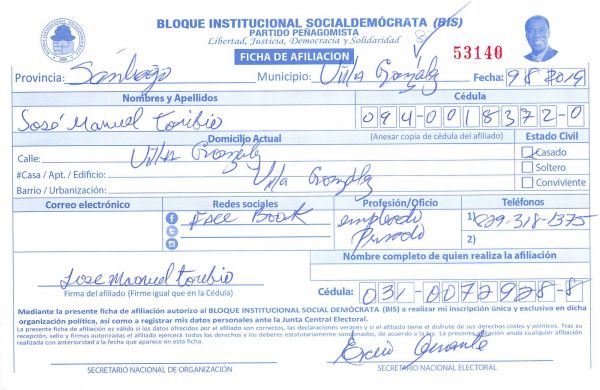 BLOQUE INSTITUCIONAL SOCIALDEMÓCRATA (BIS)
PARTIDO PEÑAGOMISTA
Libertad, Justicia, Democracia y Solidaridad
FICHA DE AFILIACION
53140
Provincia: Santiago Municipio: Villa González Fecha: 9 8 2019
Nombres y Apellidos Cédula
José Manuel Toribio 094-0018372-0
Domicilio Actual (Anexar copia de cédula del afiliado) Estado Civil
Calle: Villa González Casado
#Casa / Apt. / Edificio: Villa González Soltero
Barrio / Urbanización: Conviviente
Correo electrónico Redes sociales Profesión/Oficio Teléfonos
Face Book empleado 1) 829-318-1375
Privado 2)
Nombre completo de quien realiza la afiliación
Jose Manuel Toribio
Firma del afiliado (Firme igual que en la Cédula) Cédula: 031-0072928-8
Mediante la presente ficha de afiliación autorizo al BLOQUE INSTITUCIONAL SOCIAL DEMÓCRATA (BIS) a realizar mi inscripción única y exclusiva en dicha
organización política, así como a registrar mis datos personales ante la Junta Central Electoral.
La presente ficha de afiliación es válida si los datos ofrecidos por el afiliado son correctos, las declaraciones veraces y si el afiliado tiene el disfrute de sus derechos civiles y políticos. Tras su
recepción, sello y firmas autorizadas el afiliado ejercerá todos los derechos y el deberes estatutarios sancionables, de acuerdo a la gravedad de su falta. La presente afiliación anula cualquier afiliación
realizada con anterioridad a la fecha que aparece en esta ficha.
SECRETARIO NACIONAL DE ORGANIZACIÓN SECRETARIO NACIONAL ELECTORAL